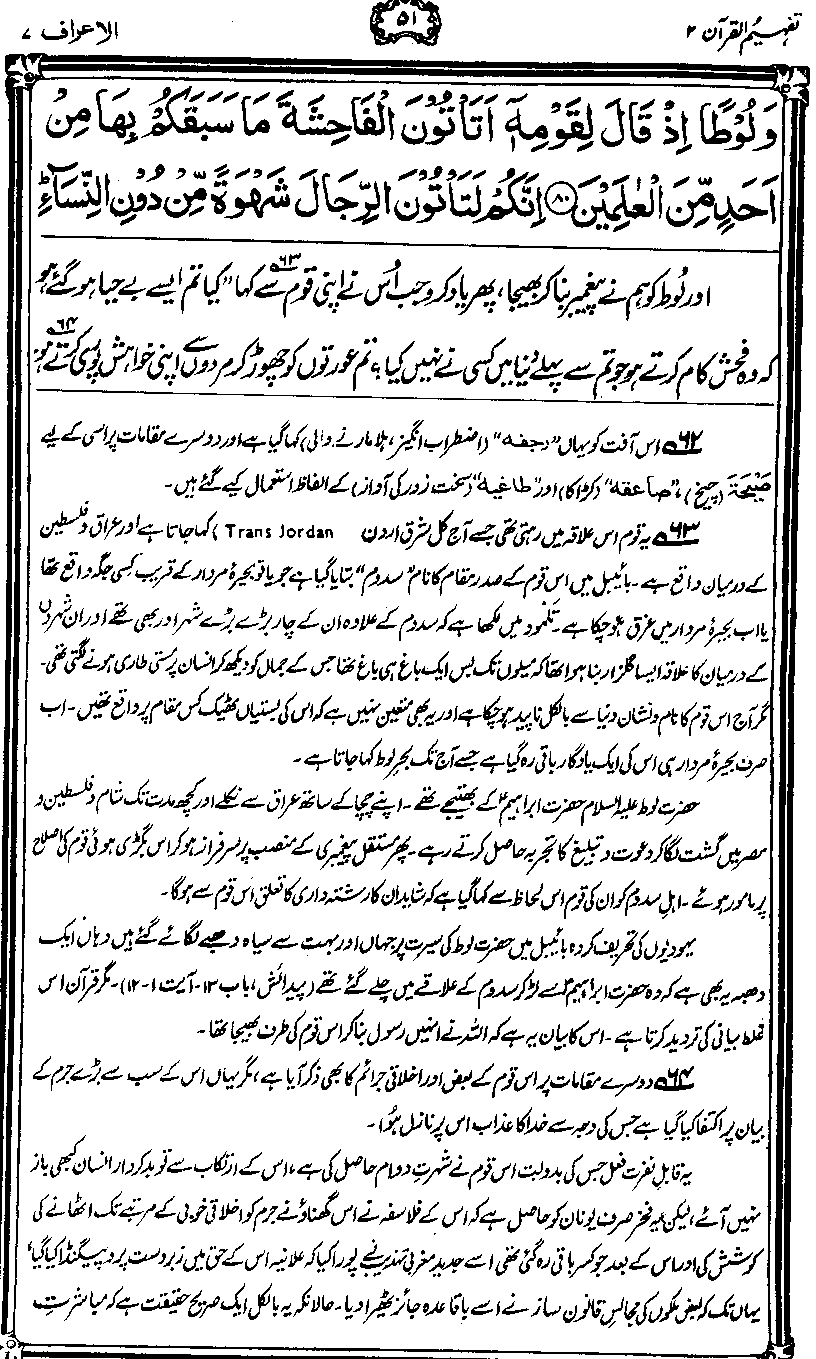 تفہیم القرآن ۲
۵۱
الاعراف ۷
وَلُوْطًا اِذْ قَالَ لِقَوْمِهٖٓ اَتَاْتُوْنَ الْفَاحِشَةَ مَا سَبَقَكُمْ بِهَا مِنْ
اَحَدٍ مِّنَ الْعٰلَمِيْنَ ۸۰ اِنَّكُمْ لَتَاْتُوْنَ الرِّجَالَ شَهْوَةً مِّنْ دُوْنِ النِّسَآءِ ؕ
اور لُوط کو ہم نے پیغمبر بنا کر بھیجا، پھر یاد کرو جب اُس نے اپنی قوم ۶۳ سے کہا "کیا تم ایسے بے حیا ہو گئے ہو
کہ وہ فحش کام کرتے ہو جو تم سے پہلے دُنیا میں کسی نے نہیں کیا؟ تم عورتوں کو چھوڑ کر مردوں سے اپنی خواہش پوری کرتے ہو ۶۴
۶۲ اس آفت کو یہاں "رجفہ" (اضطراب انگیز، ہلا مارنے والی) کہا گیا ہے اور دوسرے مقامات پر اسی کے لیے
صَیْحَۃ (چیخ)، "صاعقہ" (کڑاکا) اور "طاغیہ" (سخت زور کی آواز) کے الفاظ استعمال کیے گئے ہیں۔
۶۳ یہ قوم اس علاقہ میں رہتی تھی جسے آج کل شرق اردن Trans Jordan) کہا جاتا ہے اور عراق و فلسطین
کے درمیان واقع ہے۔ بائیبل میں اس قوم کے صدر مقام کا نام "سدوم" بتایا گیا ہے جو یا تو بحیرۂ مردار کے قریب کسی جگہ واقع تھا
یا اب بحیرۂ مردار میں غرق ہو چکا ہے۔ تلمود میں لکھا ہے کہ سدوم کے علاوہ ان کے چار بڑے بڑے شہر اور بھی تھے اور ان شہروں
کے درمیان کا علاقہ ایسا گلزار بنا ہوا تھا کہ میلوں تک بس ایک باغ ہی باغ تھا جس کے جمال کو دیکھ کر انسان پر مستی طاری ہونے لگتی تھی۔
مگر آج اس قوم کا نام و نشان دنیا سے بالکل ناپید ہو چکا ہے اور یہ بھی متعین نہیں ہے کہ اس کی بستیاں ٹھیک کس مقام پر واقع تھیں۔ اب
صرف بحیرۂ مردار ہی اس کی ایک یادگار باقی رہ گیا ہے جسے آج تک بحر لوط کہا جاتا ہے۔
حضرت لوط علیہ السلام حضرت ابراہیمؑ کے بھتیجے تھے۔ اپنے چچا کے ساتھ عراق سے نکلے اور کچھ مدت تک شام و فلسطین و
مصر میں گشت لگا کر دعوت و تبلیغ کا تجربہ حاصل کرتے رہے۔ پھر مستقل پیغمبری کے منصب پر سرفراز ہو کر اس بگڑی ہوئی قوم کی اصلاح
پر مامور ہوئے۔ اہلِ سدوم کو ان کی قوم اس لحاظ سے کہا گیا ہے کہ شاید ان کا رشتہ داری کا تعلق اس قوم سے ہو گا۔
یہودیوں کی تحریف کردہ بائیبل میں حضرت لوط کی سیرت پر جہاں اور بہت سے سیاہ دھبے لگائے گئے ہیں وہاں ایک
دھبہ یہ بھی ہے کہ وہ حضرت ابراہیمؑ سے لڑ کر سدوم کے علاقے میں چلے گئے تھے (پیدائش، باب ۱۳۔ آیت ۱-۱۲)۔ مگر قرآن اس
غلط بیانی کی تردید کرتا ہے۔ اس کا بیان یہ ہے کہ اللہ نے انہیں رسول بنا کر اس قوم کی طرف بھیجا تھا۔
۶۴ دوسرے مقامات پر اس قوم کے بعض اور اخلاقی جرائم کا بھی ذکر آیا ہے، مگر یہاں اس کے سب سے بڑے جرم کے
بیان پر اکتفا کیا گیا ہے جس کی وجہ سے خدا کا عذاب اس پر نازل ہُوا۔
یہ قابلِ نفرت فعل جس کی بدولت اس قوم نے شہرتِ دوام حاصل کی ہے، اس کے ارتکاب سے تو بدکردار انسان کبھی باز
نہیں آئے، لیکن یہ فخر صرف یونان کو حاصل ہے کہ اس کے فلاسفہ نے اس گھناؤنے جرم کو اخلاقی خوبی کے مرتبے تک اٹھانے کی
کوشش کی اور اس کے بعد جو کسر باقی رہ گئی تھی اسے جدید مغربی تہذیب نے پورا کیا کہ علانیہ اس کے حق میں زبردست پروپیگنڈا کیا گیا،
یہاں تک کہ بعض ملکوں کی مجالسِ قانون ساز نے اسے باقاعدہ جائز ٹھیرا دیا۔ حالانکہ یہ بالکل ایک صریح حقیقت ہے کہ مباشرتِ